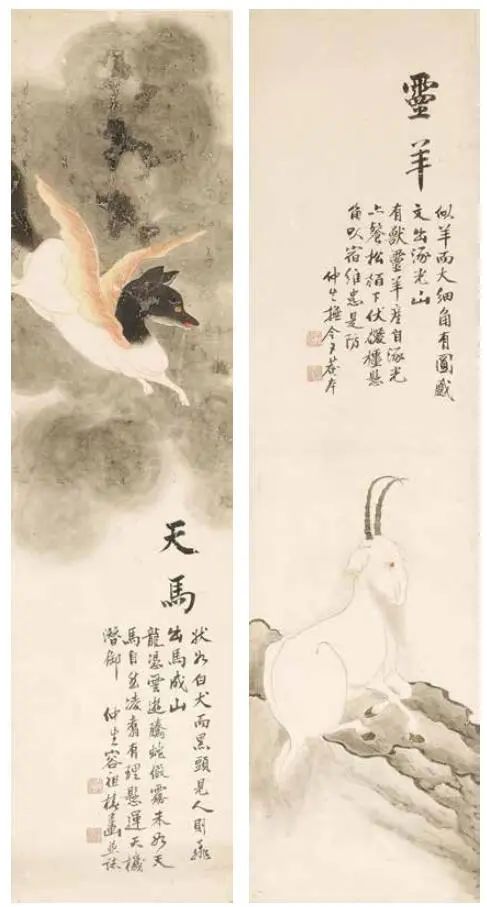 靈羊
似羊而大細角有圓蹙
文出涿光山
有獸靈羊產自涿光
松下伏殭懸
角以宿維患是防
仲生撫今夕菴本
天馬
狀如白犬而黑頭見人則飛
出馬成山
龍憑雲遊騰蛇假霧未若天
馬自然凌翥有理懸運天機
潛御 仲生容祖椿畫並誌